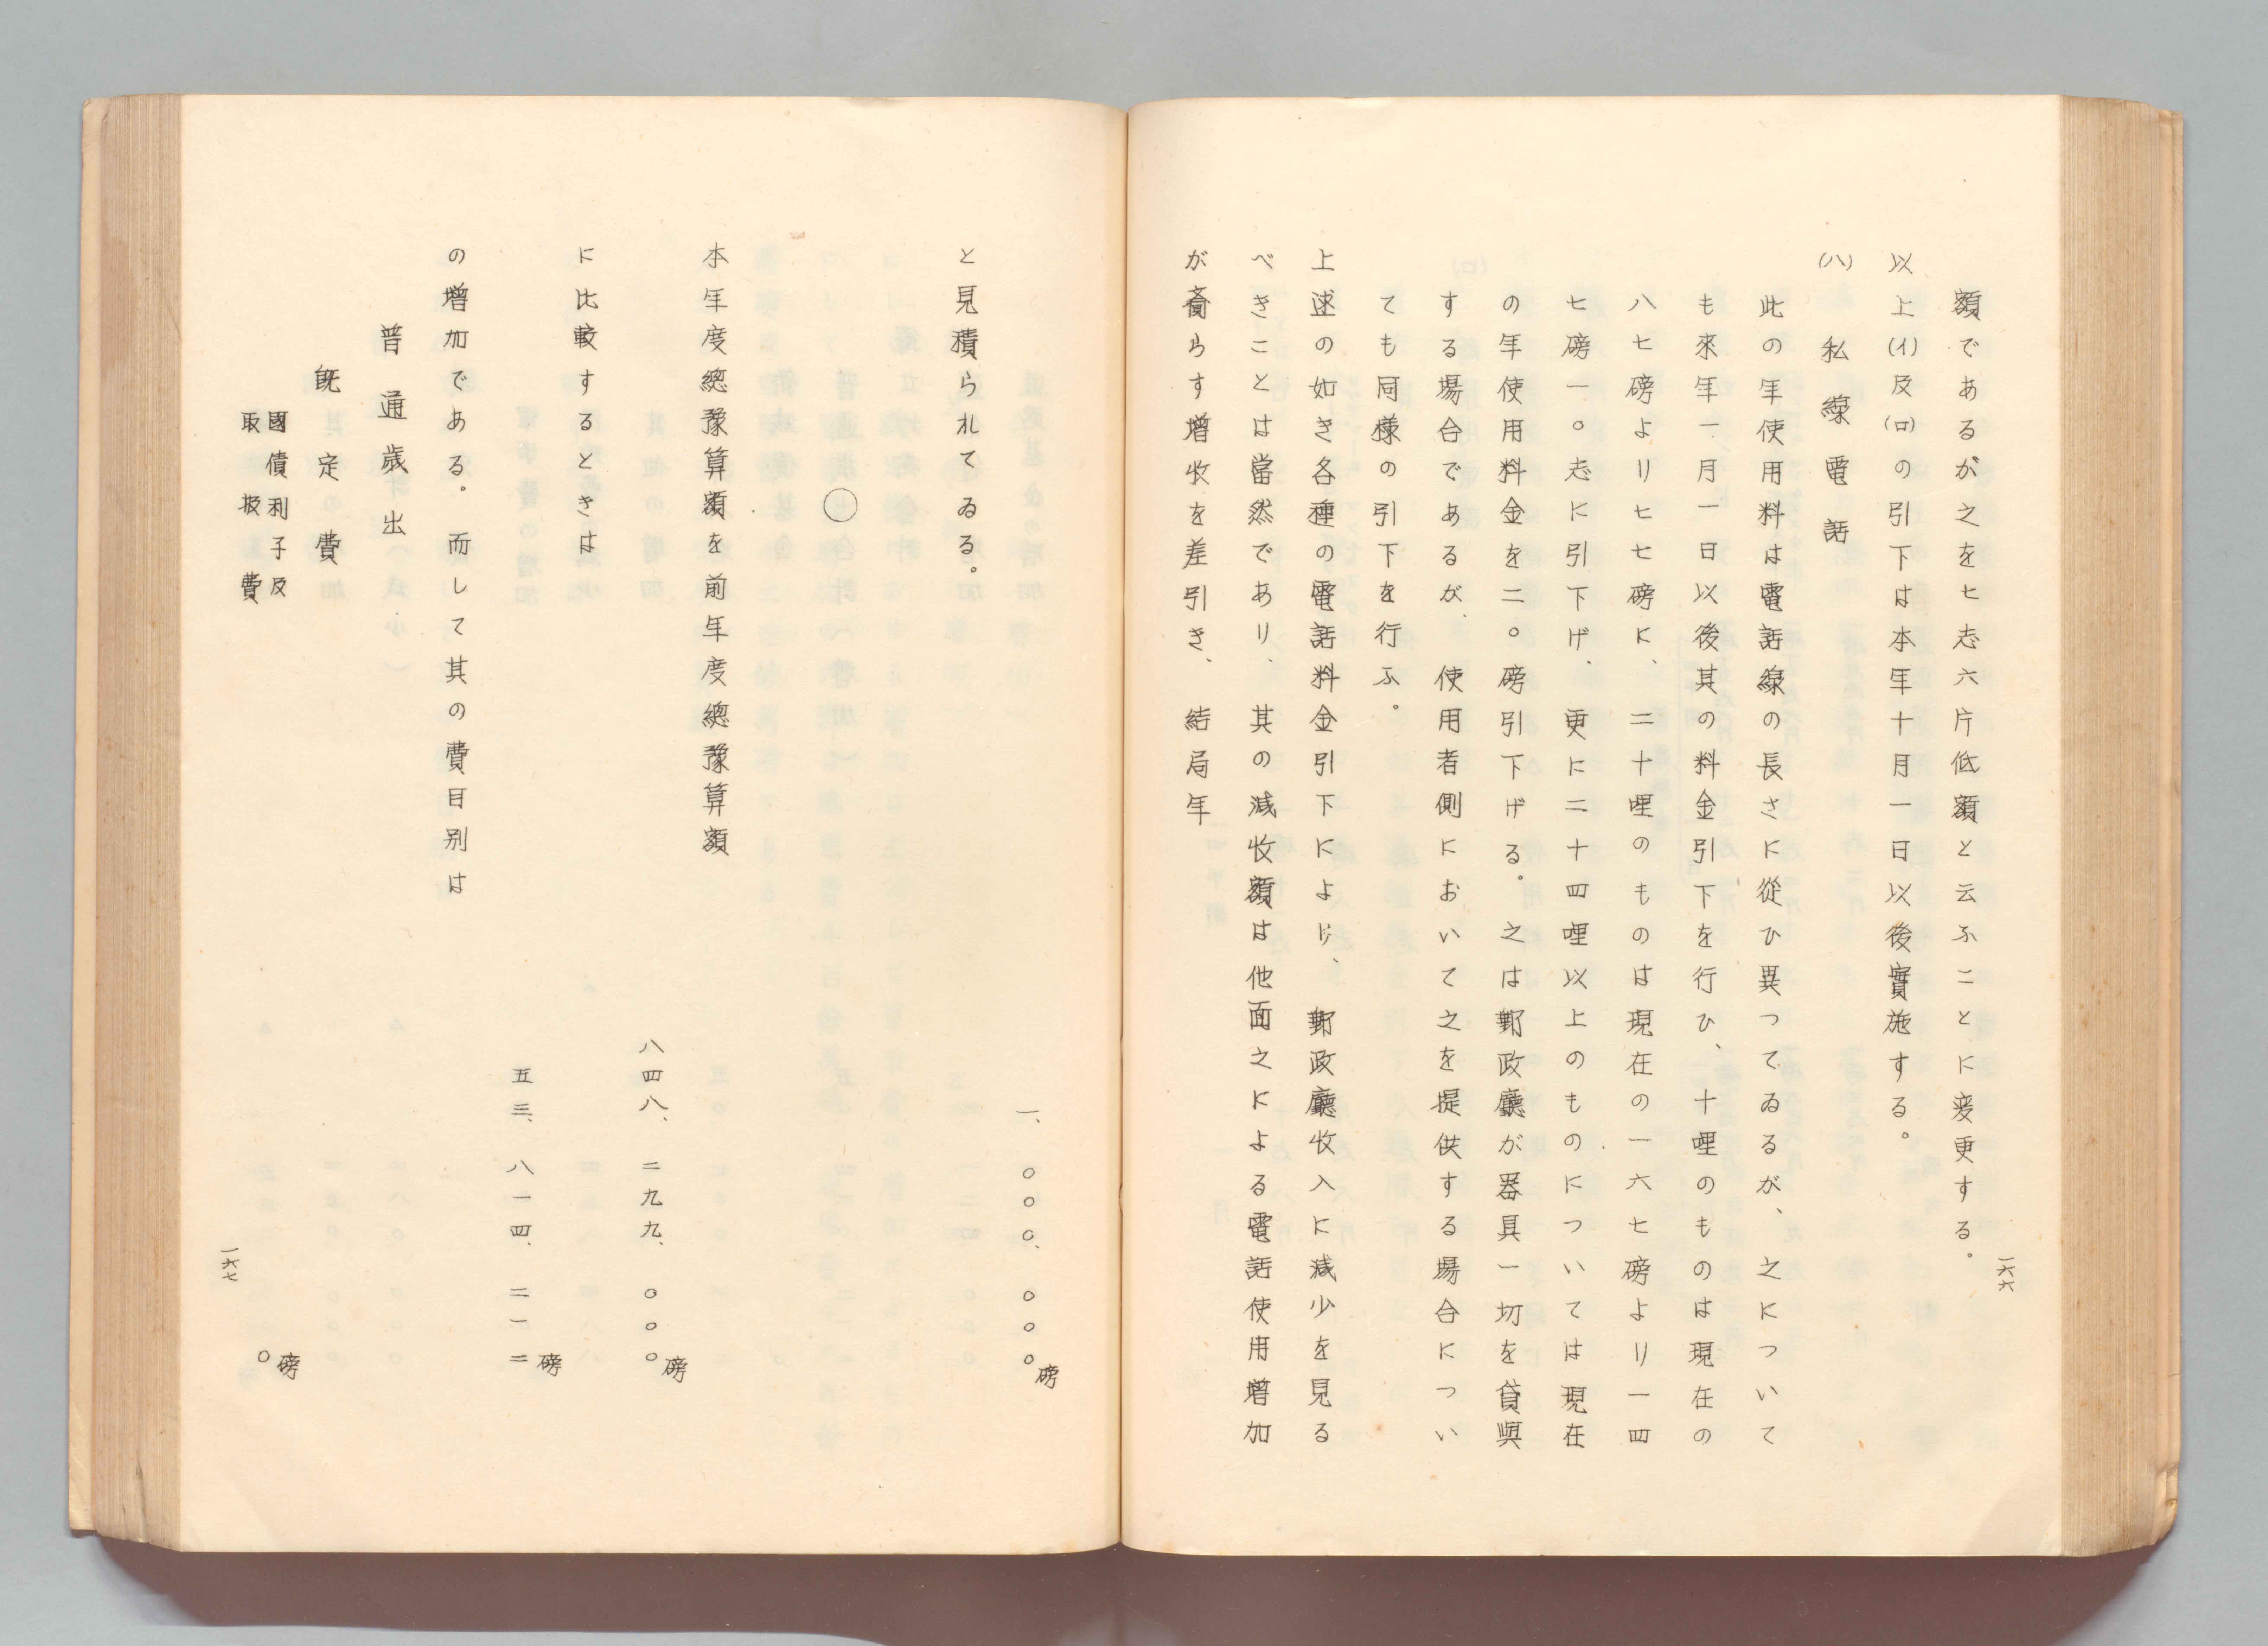 一六六
額であるが之を七志六片低額と云ふことに変更する。
以上(イ)及(ロ)の引下は本年十月一日以後實施する。
(ハ) 私線電話
此の年使用料は電話線の長さに從ひ異つてゐるが、之について
も來年一月一日以後其の料金引下を行ひ、十哩のものは現在の
八七磅より七七磅に、二十哩のものは現在の一六七磅より一四
七磅一〇志に引下げ、更に二十四哩以上のものについては現在
の年使用料金を二〇磅引下げる。之は郵政廳が器具一切を貸與
する場合であるが、使用者側において之を提供する場合につい
ても同様の引下を行ふ。
上述の如き各種の電話料金引下により、郵政廳收入に減少を見る
べきことは當然であり、其の減收額は他面之による電話使用増加
が齎らす増收を差引き、結局年
一、〇〇〇、〇〇〇磅
と見積られてゐる。
〇
本年度總豫算額を前年度總豫算額
八四八、二九九、〇〇〇磅
に比較するときは
五三、八一四、二一二磅
の増加である。而して其の費目別は
普通歳出
既定費
國債利子及
取扱費
〇磅
一六七